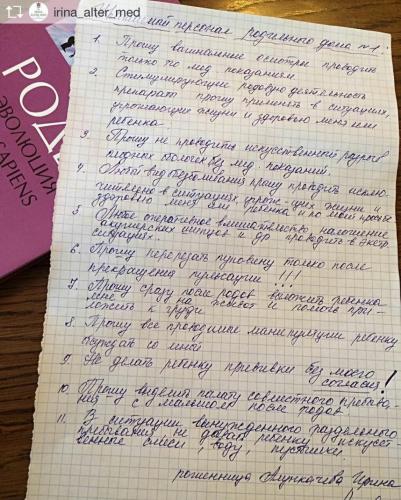 irina_alter_med
РОД
ЭВОЛЮЦИЯ
SAPIENS
персонал родильного дома №1.
1. Прошу вагинальные осмотры проводить
только по мед показаниям.
2. Стимулирующие родовую деятельность
препараты прошу применять в ситуациях,
угрожающих жизни и здоровью меня или
ребенка
3 Прошу не проводить искусственный разрыв
плодных оболочек без мед. показаний.
4. Любой вид обезболивания прошу проводить исклю-
чительно в ситуациях угрож-щих жизни и
здоровью меня или ребенка и по моей просьбе
5 Любое оперативное вмешательство, наложение
акушерских щипцов и др проводить в экстр.
ситуациях.
6. Прошу перерезать пуповину только после
прекращения пульсации !!!
7. Прошу сразу после родов выложить ребенка
мне на живот и помочь при-
ложить к груди
8. Прошу все проводимые манипуляции ребенку
обсуждать со мной
9. Не делать ребенку прививки без моего
согласия!
10. Прошу выделить палату совместного пребыва-
ния с малышом после родов
11. В ситуации вынужденного раздельного
пребывания не давать ребенку искусст-
венные смеси, воду, пустышки.
роженница Ирина